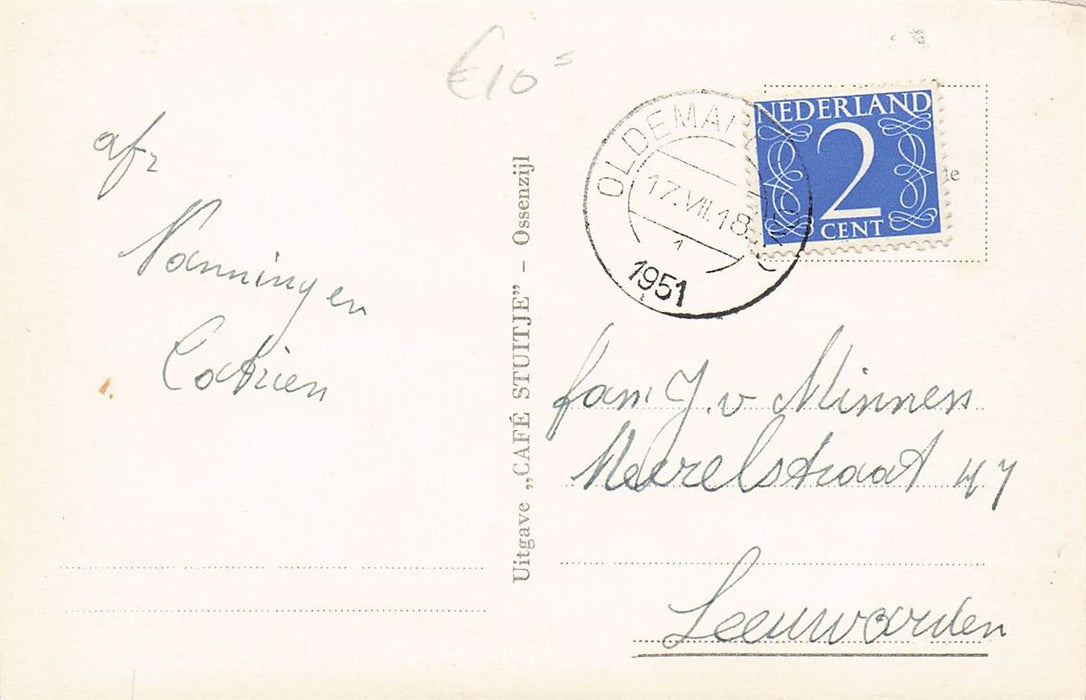 €10
afz
Nanning en
Catrien
Uitgave „CAFÉ STUITJE” – Ossenzijl
OLDEMAR
17.VII.18
1
1951
NEDERLAND
2
CENT
fam J. v Minnen
Meerelstraat 47
Leeuwarden